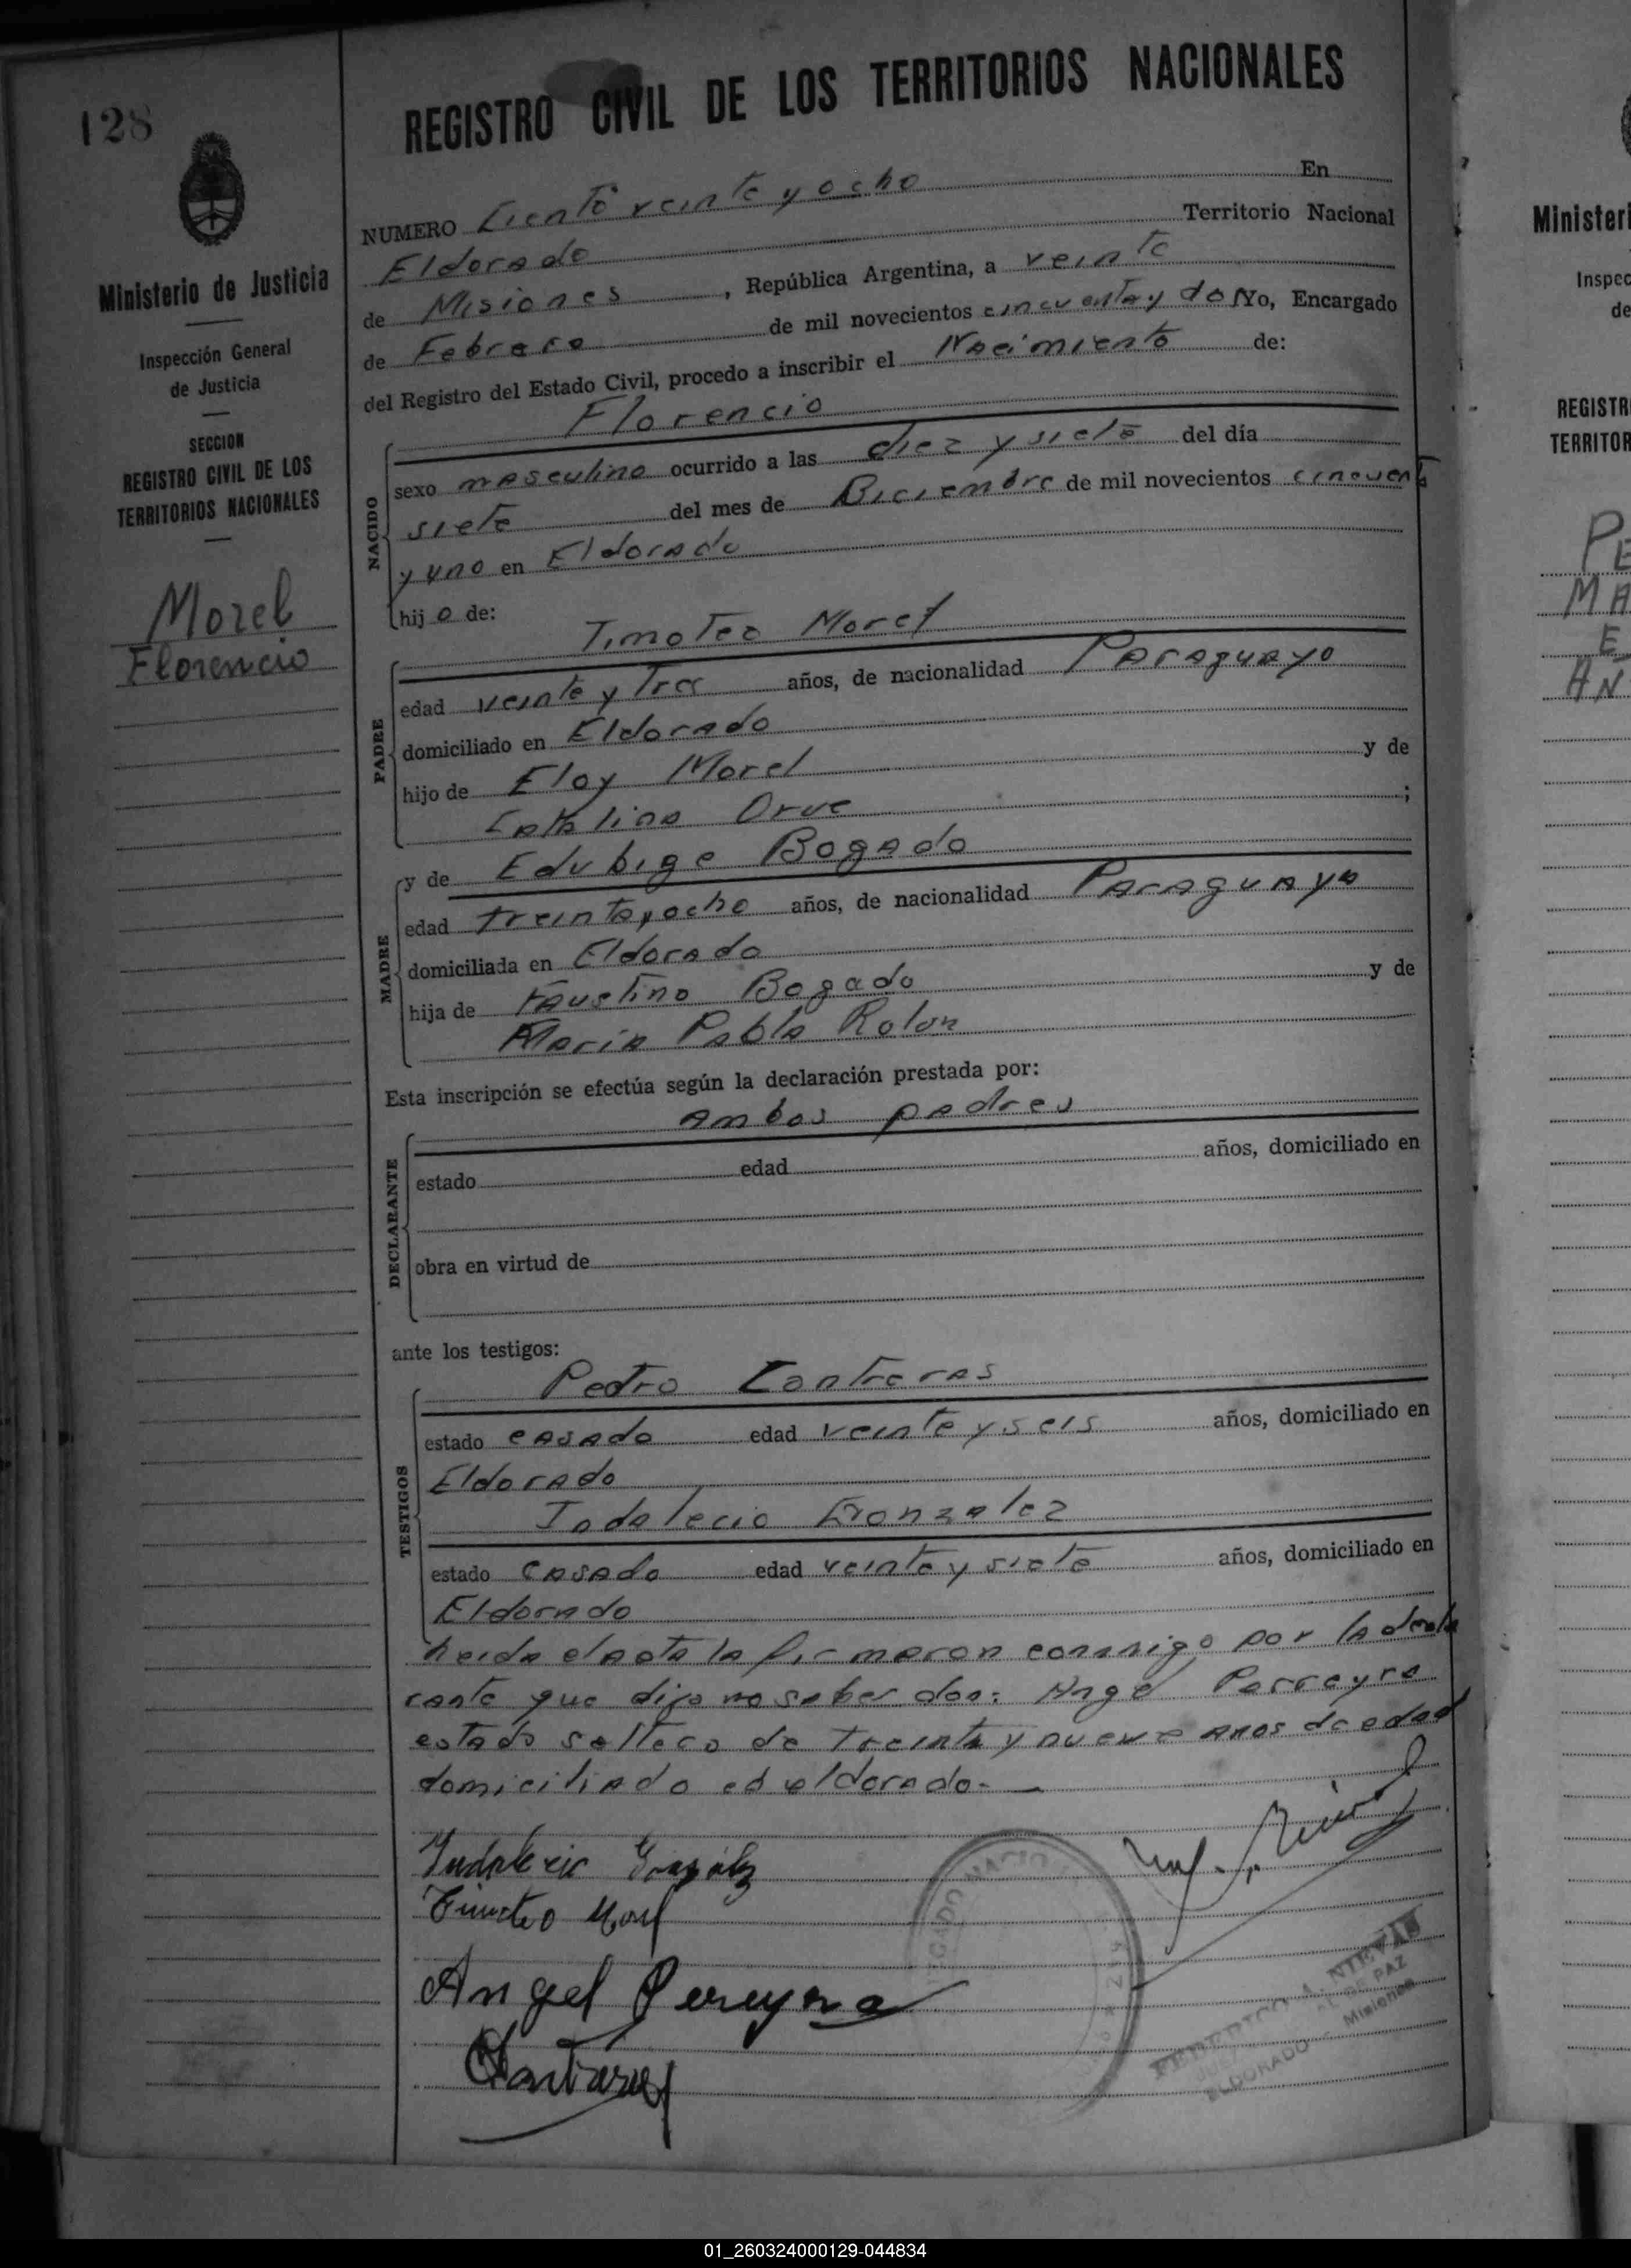 128
Ministerio de Justicia
Inspección General
de Justicia
SECCION
REGISTRO CIVIL DE LOS
TERRITORIOS NACIONALES
Morel
Florencio
REGISTRO CIVIL DE LOS TERRITORIOS NACIONALES
NUMERO Ciento veinte y ocho En
Eldorado Territorio Nacional
de Misiones, República Argentina, a veinte
de Febrero de mil novecientos cincuenta y dos Yo, Encargado
del Registro del Estado Civil, procedo a inscribir el Nacimiento de:
Florencio
NACIDO
sexo masculino ocurrido a las diez y siete del día
siete del mes de Diciembre de mil novecientos cincuenta
y uno en Eldorado
hijo de:
Timoteo Morel
PADRE
edad veinte y tres años, de nacionalidad Paraguayo
domiciliado en Eldorado
hijo de Eloy Morel y de
Catalina Orue ;
y de Edubige Bogado
MADRE
edad treinta y ocho años, de nacionalidad Paraguaya
domiciliada en Eldorado
hija de Faustino Bogado y de
Maria Pabla Rolon
Esta inscripción se efectúa según la declaración prestada por:
ambos padres
DECLARANTE
estado edad años, domiciliado en
obra en virtud de
ante los testigos:
Pedro Contreras
TESTIGOS
estado casado edad veinte y seis años, domiciliado en
Eldorado
Indalecio Gonzalez
estado casado edad veinte y siete años, domiciliado en
Eldorado
Leida el acta la firmaron conmigo por la decla
rante que dijo no saber don: Angel Perreyra
estado soltero de treinta y nueve anos de edad
domiciliado en eldorado.
Indalecio González
Timoteo Morel
Angel Pereyra
FEDERICO A. NIEVAS
DE PAZ
ELDORADO - Misiones
Minister
Inspec
de
REGISTR
TERRITOR
PE
MA
E
AN
01_260324000129-044834